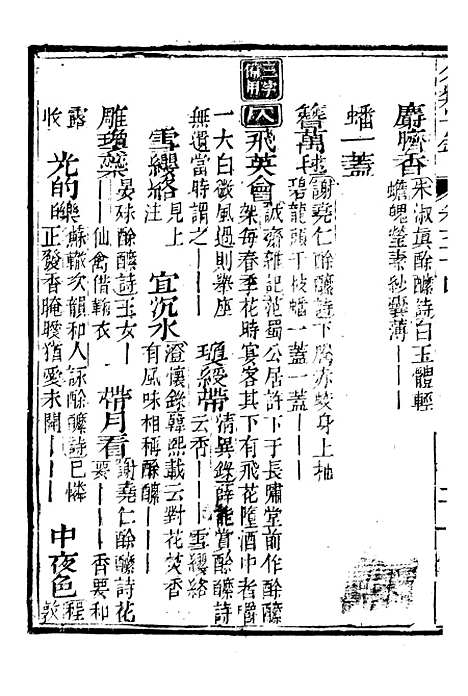 麝臍香 朱淑真酴醾詩白玉體輕
蟾魄瑩素紗囊薄｜｜｜
蟠一蓋
簪萬毬 謝堯仁酴醾詩下勝赤蛟身上抽
碧龍頭千枝蟠一蓋一蓋｜｜｜
三字備用
八 飛英會 誠齋雜記范蜀公居許下于長嘯堂前作酴醾
架每春季花時宴客其下有飛花墮酒中者嚼
一大白微風過則舉座
無遺當時謂之｜｜｜ 瓊綬帶 清異錄薛能賞酴醾詩
云香｜｜｜雪纓絡
雪纓絡 見上
注 宜沉水 澄懷錄韓熙載云對花焚香
有風味相稱酴醾｜｜｜
雕瓊蘂 晏殊酴醾詩玉女｜
｜｜仙禽借縞衣 帶月看 謝堯仁酴醾詩花
要｜｜｜香要和
露
收 光的皪 蘇轍次韻和人詠酴醾詩已憐
正發香晻曖猶愛未開｜｜｜ 中夜色 程
敦